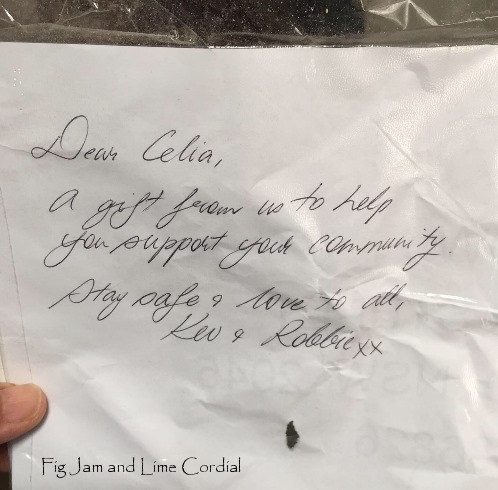 Dear Celia,
A gift from us to help
you support your community.
Stay safe & love to all,
Kev & Robbie xx
Fig Jam and Lime Cordial